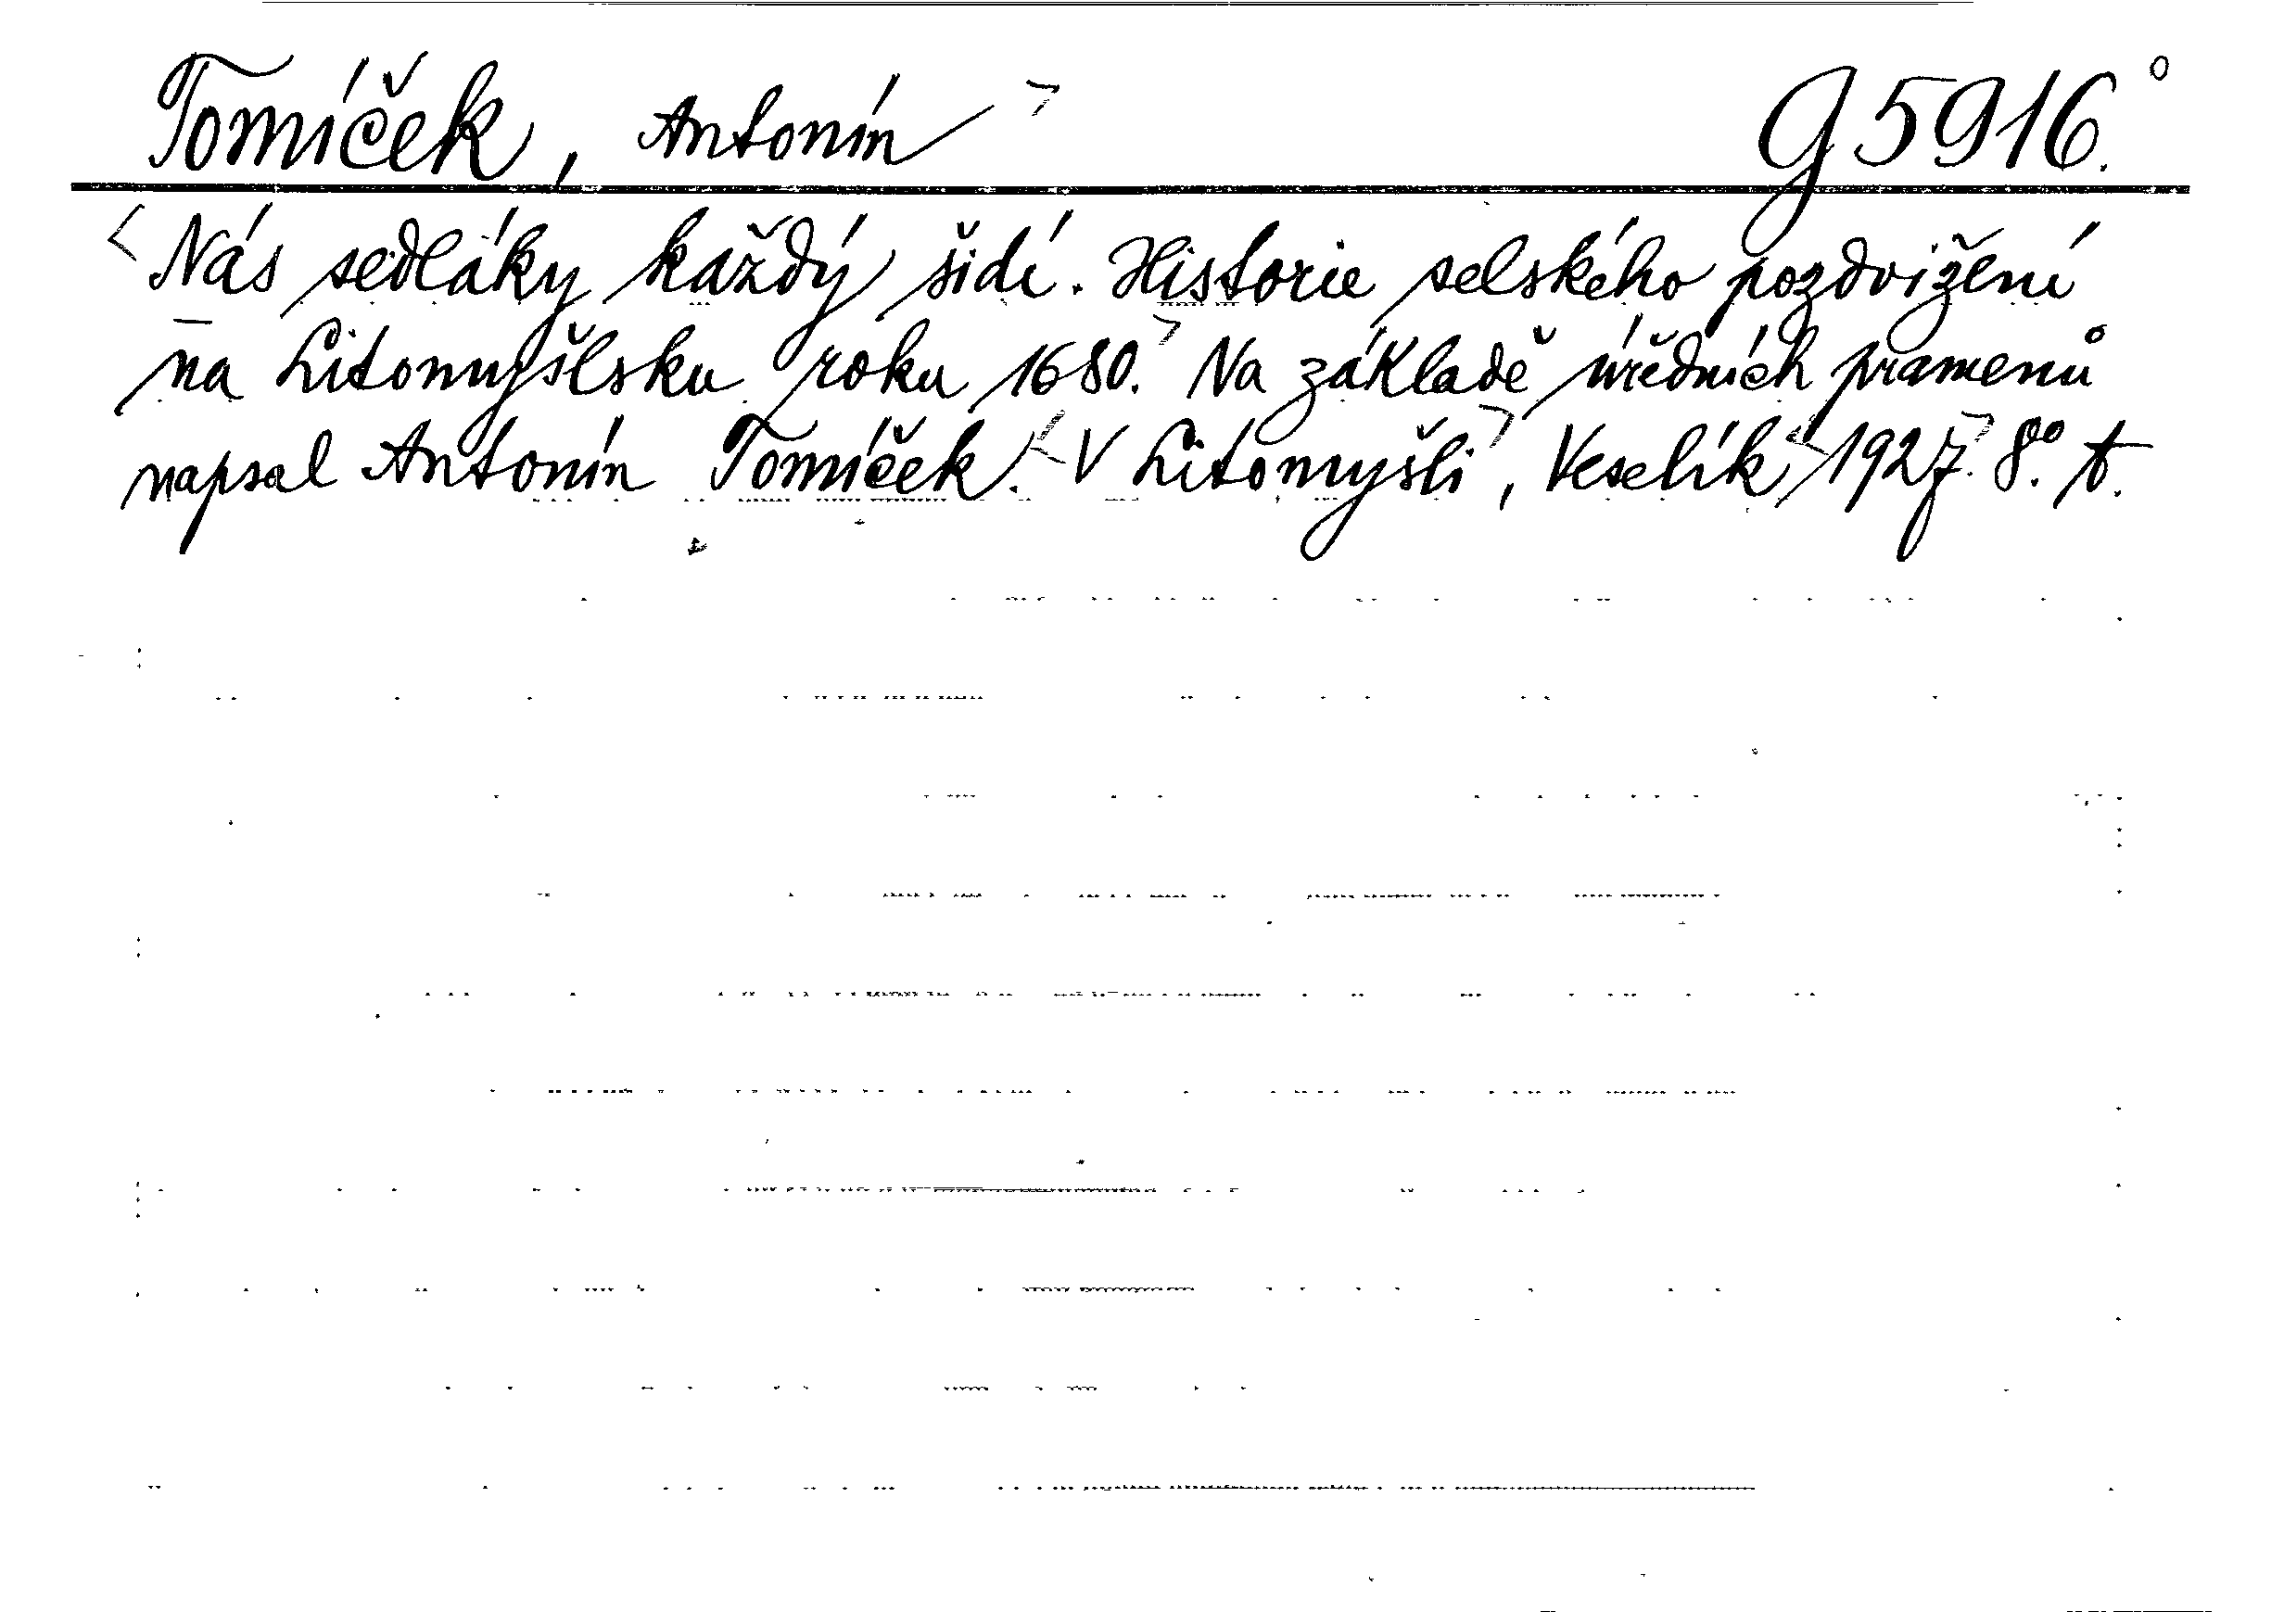 Tomíček, Antonín G 5916.
Nás sedláky každý šidí. Historie selského pozdvižení
na Litomyšlsku roku 1680. Na základě úředních pramenů
napsal Antonín Tomíček. V Litomyšli, Veselík 1927. 8°. t.